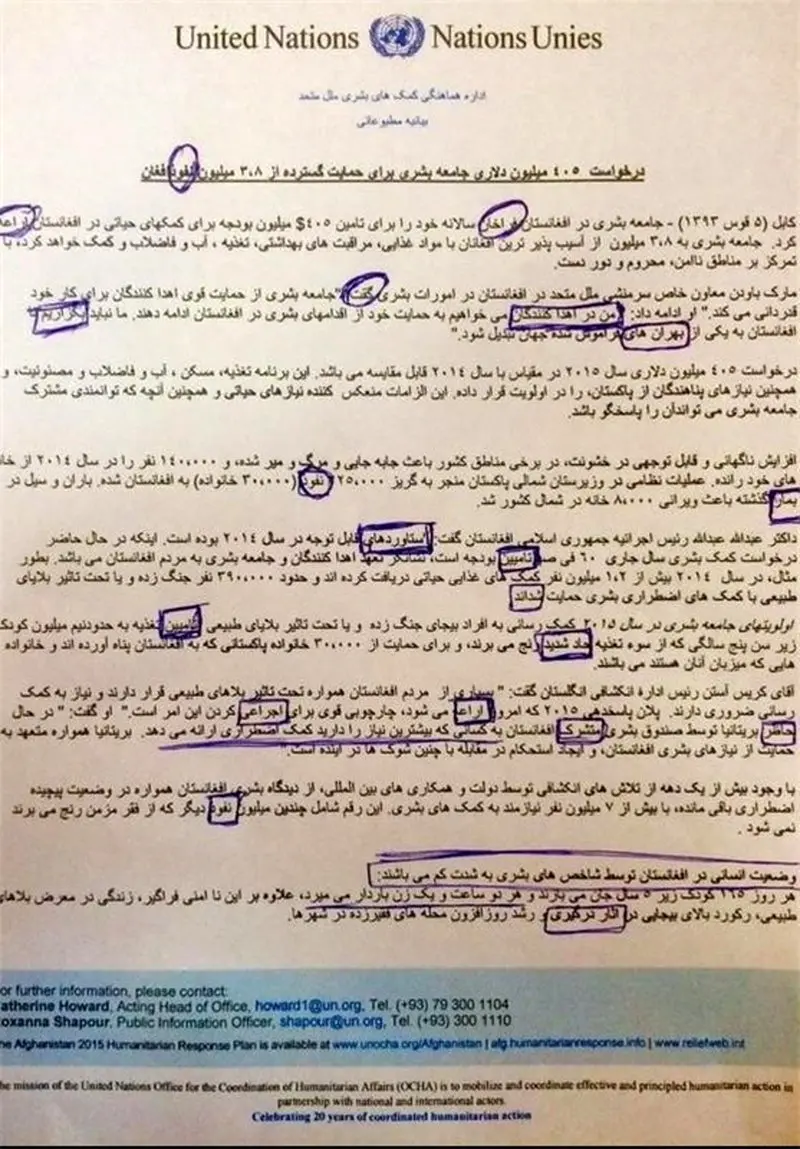 United Nations Nations Unies
اداره هماهنگی کمک های بشری ملل متحد
بیانیه مطبوعاتی
درخواست ۴۰۵ میلیون دلاری جامعه بشری برای حمایت گسترده از ۳،۸ میلیون نفوذ افغان
کابل (۵ قوس ۱۳۹۳) - جامعه بشری در افغانستان فراخان سالانه خود را برای تامین ۴۰۵$ میلیون بودجه برای کمکهای حیاتی در افغانستان اراعه
کرد. جامعه بشری به ۳،۸ میلیون از آسیب پذیر ترین افغانان با مواد غذایی، مراقبت های بهداشتی، تغذیه ، آب و فاضلاب و کمک خواهد کرد، با
تمرکز بر مناطق ناامن، محروم و دور دست.
مارک باودن معاون خاص سرمنشی ملل متحد در افغانستان در امورات بشری گفت: "جامعه بشری از حمایت قوی اهدا کنندگان برای کار خود
قدردانی می کند." او ادامه داد: "من در اهدا کنندگان می خواهیم به حمایت خود از اقدامهای بشری در افغانستان ادامه دهند. ما نباید بگزاریم
افغانستان به یکی از بهران های فراموش شده جهان تبدیل شود."
درخواست ۴۰۵ میلیون دلاری سال ۲۰۱۵ در مقیاس با سال ۲۰۱۴ قابل مقایسه می باشد. این برنامه تغذیه، مسکن ، آب و فاضلاب و مصئونیت، و
همچنین نیازهای پناهندگان از پاکستان، را در اولویت قرار داده. این الزامات منعکس کننده نیازهای حیاتی و همچنین آنچه که توانمندی مشترک
جامعه بشری می تواندآن را پاسخگو باشد.
افزایش ناگهانی و قابل توجهی در خشونت، در برخی مناطق کشور باعث جابه جایی و مرگ و میر شده، و ۱۴۰،۰۰۰ نفر را در سال ۲۰۱۴ از خانه
های خود رانده. عملیات نظامی در وزیرستان شمالی پاکستان منجر به گریز ۲۲۵،۰۰۰ نفوذ (۳۰،۰۰۰ خانواده) به افغانستان شده. باران و سیل در
بمار گذشته باعث ویرانی ۸،۰۰۰ خانه در شمال کشور شد.
داکتر عبدالله عبدالله رئیس اجرائیه جمهوری اسلامی افغانستان گفت: "دستاوردهای قابل توجه در سال ۲۰۱۴ بوده است. اینکه در حال حاضر
درخواست کمک بشری سال جاری ۶۰ فی صد تامیین بودجه است، نشانگر تعهد اهدا کنندگان و جامعه بشری به مردم افغانستان می باشد. بطور
مثال، در سال ۲۰۱۴ بیش از ۱،۲ میلیون نفر کمک های غذایی حیاتی دریافت کرده اند و حدود ۳۹۰،۰۰۰ نفر جنگ زده و یا تحت تاثیر بلایای
طبیعی با کمک های اضطراری بشری حمایت شداند
اولویتهای جامعه بشری در سال ۲۰۱۵ کمک رسانی به افراد بیجای جنگ زده و یا تحت تاثیر بلایای طبیعی تامیین تغذیه به حدودنیم میلیون کودک
زیر سن پنج سالگی که از سوء تغذیه حاد شدید رنج می برند، و برای حمایت از ۳۰،۰۰۰ خانواده پاکستانی که به افغانستان پناه آورده اند و خانواده
هایی که میزبان آنان هستند می باشند.
آقای کریس آستن رئیس ادارۀ انکشافی انگلستان گفت: " بسیاری از مردم افغانستان همواره تحت تاثیر بلاهای طبیعی قرار دارند و نیاز به کمک
رسانی ضروری دارند. پلان پاسخدهی ۲۰۱۵ که امروز اراعه می شود، چارچوبی قوی برای اجراعی کردن این امر است." او گفت: " در حال
حاضر بریتانیا توسط صندوق بشری متشرک افغانستان به کسانی که بیشترین نیاز را دارید کمک اضطراری ارائه می دهد. بریتانیا همواره متعهد به
حمایت از نیازهای بشری افغانستان، و ایجاد استحکام در مقابله با چنین شوک ها در آینده است."
با وجود بیش از یک دهه از تلاش های انکشافی توسط دولت و همکاری های بین المللی، از دیدگاه بشری افغانستان همواره در وضعیت پیچیده
اضطراری باقی مانده، با بیش از ۷ میلیون نفر نیازمند به کمک های بشری. این رقم شامل چندین میلیون نفوذ دیگر که از فقر مزمن رنج می برند
نمی شود .
وضعیت انسانی در افغانستان توسط شاخص های بشری به شدت کم می باشند:
هر روز ۱۶۵ کودک زیر ۵ سال جان می بازند و هر دو ساعت و یک زن باردار می میرد، علاوه بر این نا امنی فراگیر، زندگی در معرض بلاهای
طبیعی، رکورد بالای بیجایی در اثار درگیری و رشد روزافزون محله های فقیرزده در شهرها.
or further information, please contact:
atherine Howard, Acting Head of Office, howard1@un.org, Tel. (+93) 79 300 1104
oxanna Shapour, Public Information Officer, shapour@un.org, Tel. (+93) 300 1110
he Afghanistan 2015 Humanitarian Response Plan is available at www.unocha.org/Afghanistan | afg.humanitarianresponse.info | www.reliefweb.int
he mission of the United Nations Office for the Coordination of Humanitarian Affairs (OCHA) is to mobilize and coordinate effective and principled humanitarian action in
partnership with national and international actors.
Celebrating 20 years of coordinated humanitarian action